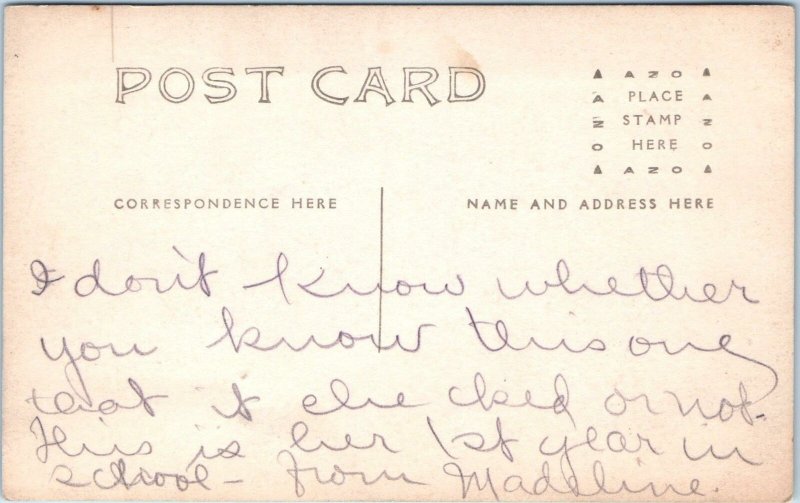 POST CARD
AZO
PLACE
STAMP
HERE
AZO
CORRESPONDENCE HERE
NAME AND ADDRESS HERE
I don't know whether
you know this one
that it checked or not.
This is her 1st year in
school - from Madeline.